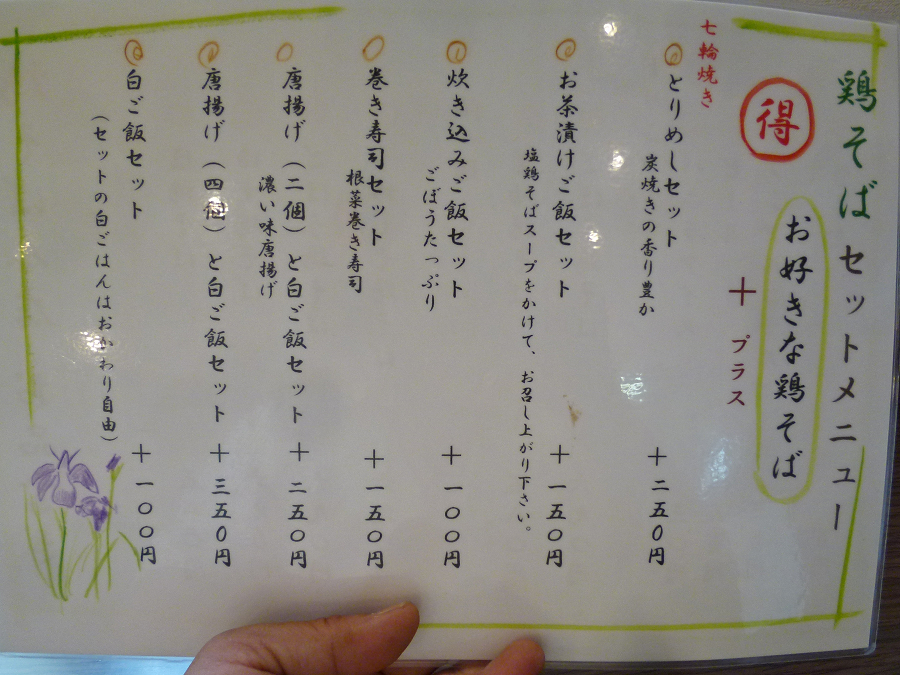 鶏そばセットメニュー
得
お好きな鶏そば
＋プラス
七輪焼き
とりめしセット ＋二五〇円
炭焼きの香り豊か
お茶漬けご飯セット ＋一五〇円
塩鶏そばスープをかけて、お召し上がり下さい。
炊き込みご飯セット ＋一〇〇円
ごぼうたっぷり
巻き寿司セット ＋一五〇円
根菜巻き寿司
唐揚げ（二個）と白ご飯セット ＋二五〇円
濃い味唐揚げ
唐揚げ（四個）と白ご飯セット ＋三五〇円
白ご飯セット ＋一〇〇円
（セットの白ごはんはおかわり自由）